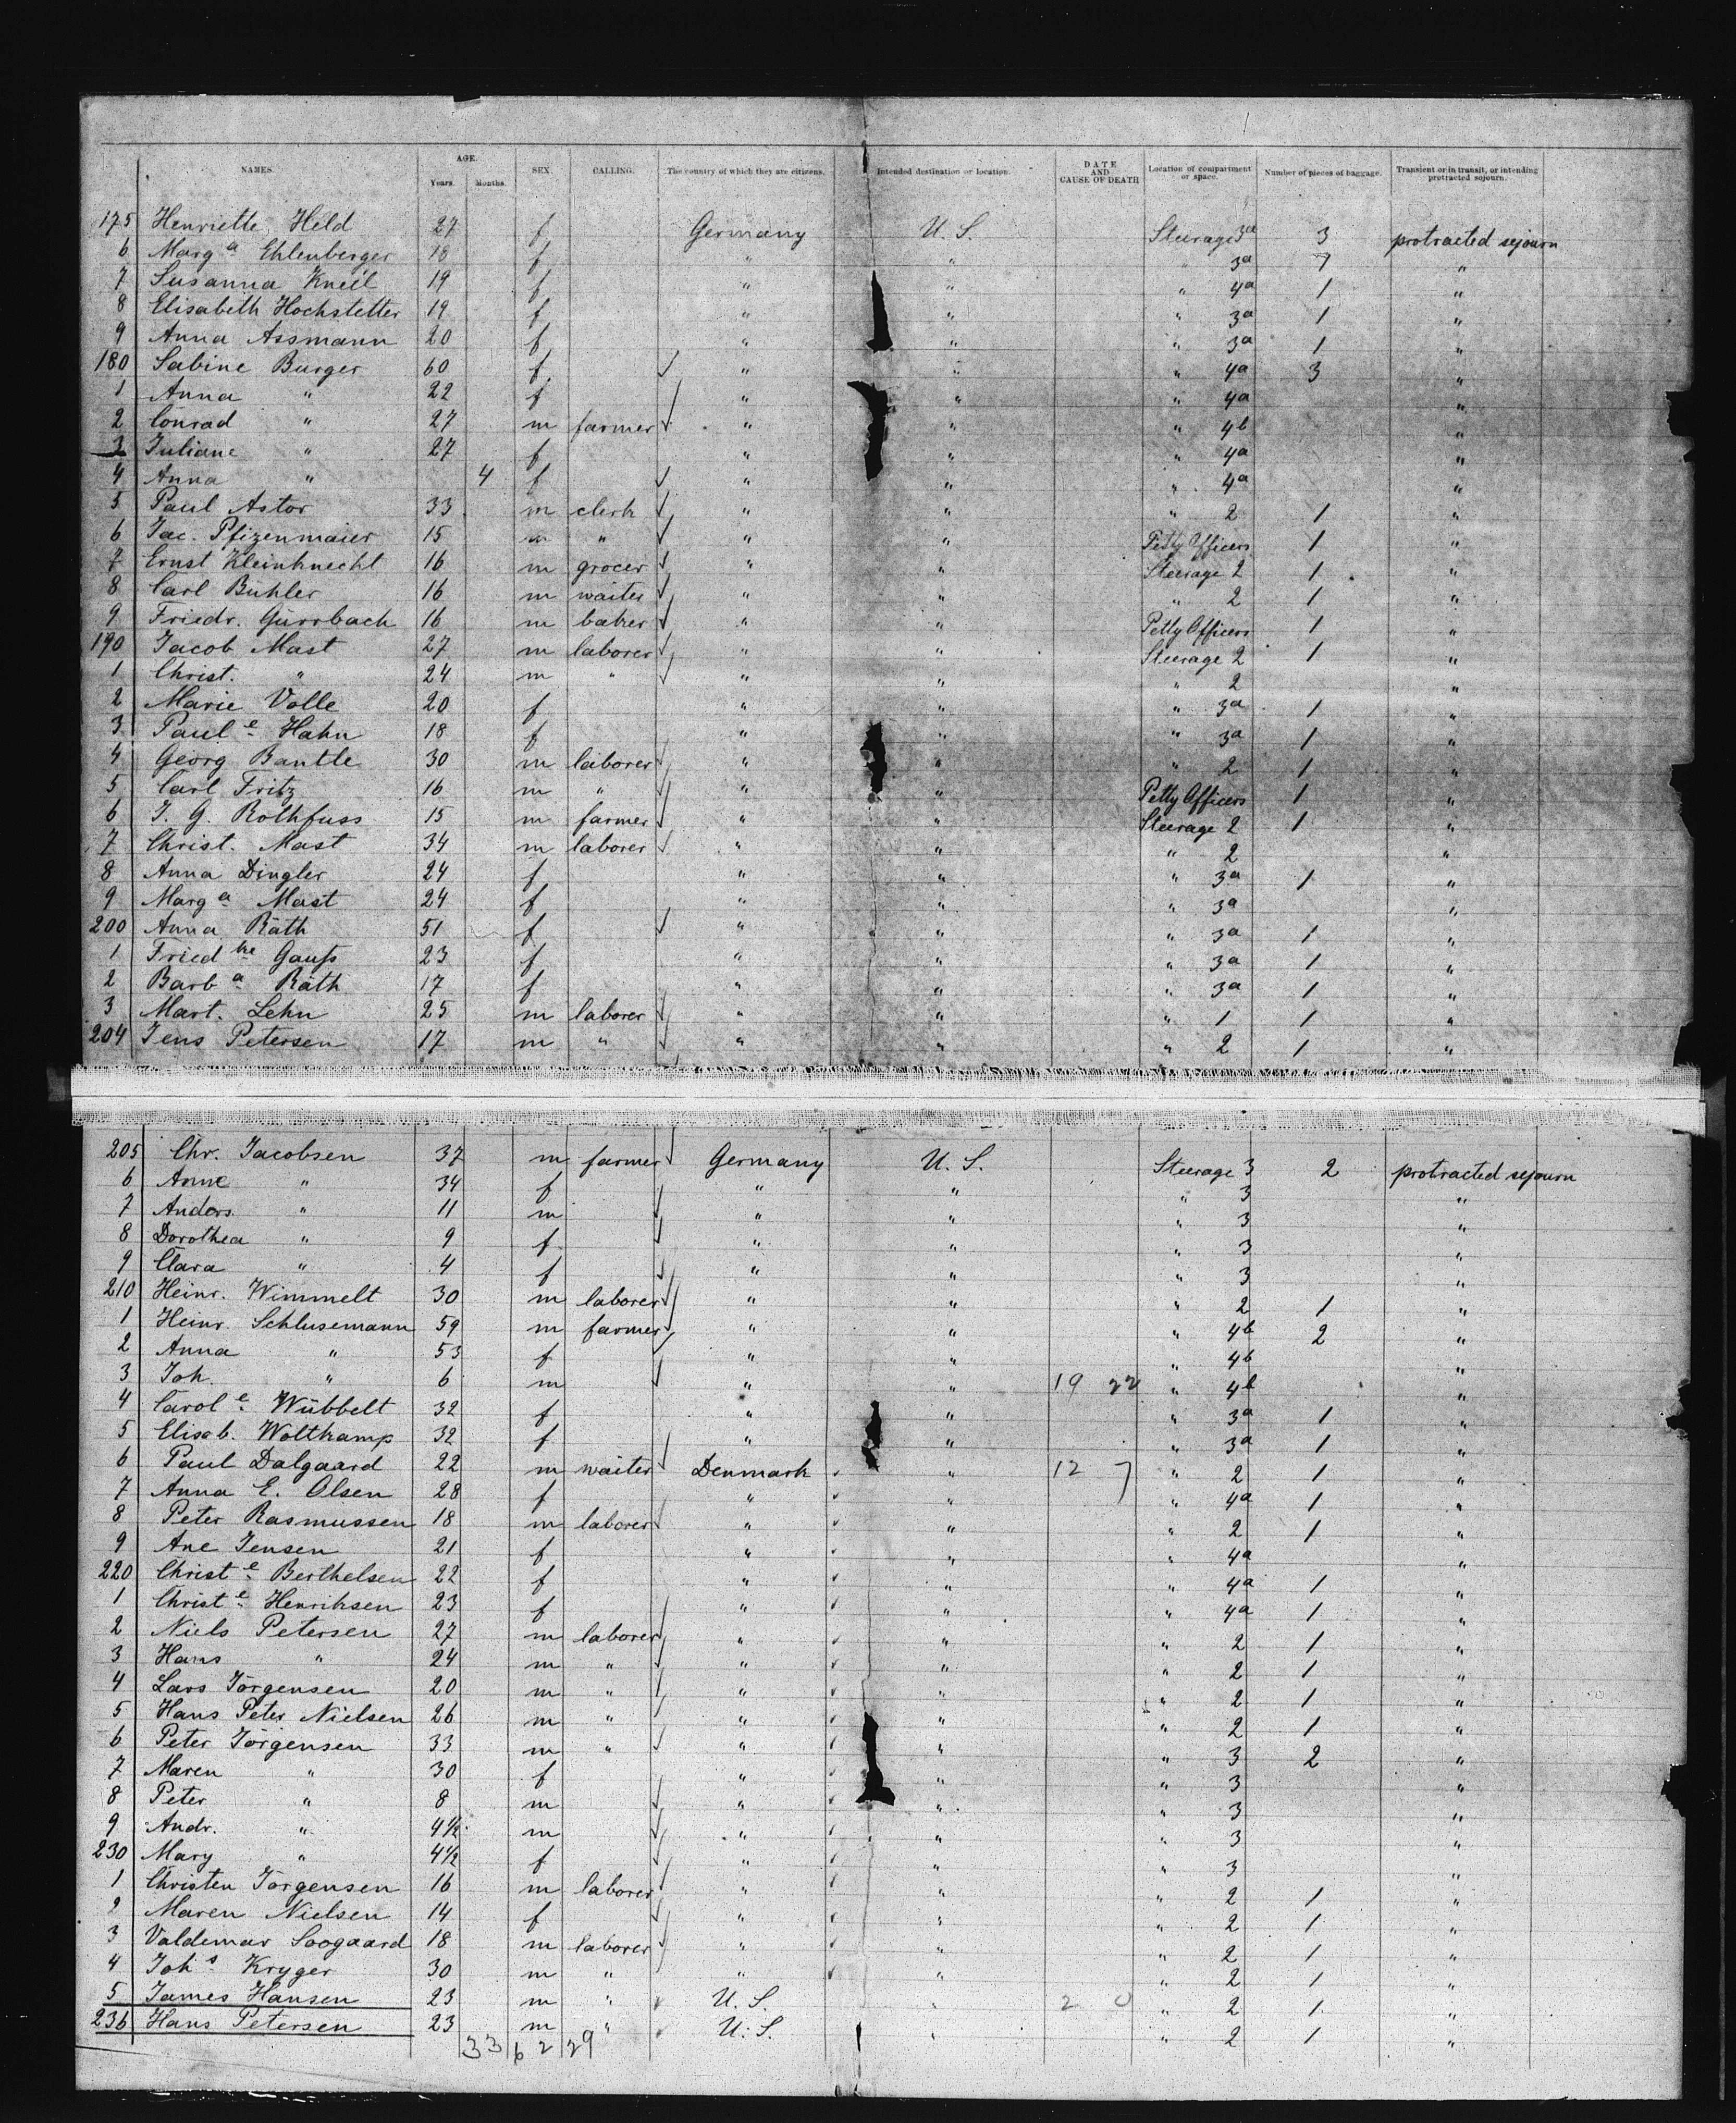 NAMES. AGE. Years. Months. SEX. CALLING. The country of which they are citizens. Intended destination or location. DATE AND CAUSE OF DEATH Location of compartment or space. Number of pieces of baggage. Transient or in transit, or intending protracted sojourn.
175 Henriette Held 27 f Germany U. S. Steerage 3a 3 protracted sejourn
6 Marga Ehlenberger 18 f " " 3a 7 "
7 Susanna Kneil 19 f " " " 4a 1 "
8 Elisabeth Hochstetter 19 f " " " 3a 1 "
9 Anna Assmann 20 f " " " 3a 1 "
180 Sabine Burger 60 f " " " 4a 3 "
1 Anna " 22 f " " " 4a "
2 Conrad " 27 m farmer " " " 4b "
3 Juliane " 27 f " " " 4a "
4 Anna " 4 f " " " 4a "
5 Paul Astor 33 m clerk " " " 2 1 "
6 Jac. Pfizenmaier 15 m " " " Petty Officers 1 "
7 Ernst Kleinknecht 16 m grocer " " Steerage 2 1 "
8 Carl Bühler 16 m waiter " " " 2 1 "
9 Friedr. Gürrbach 16 m baker " " Petty Officers 1 "
190 Jacob Mast 27 m laborer " " Steerage 2 1 "
1 Christ. " 24 m " " " " 2 "
2 Marie Volle 20 f " " " 3a 1 "
3 Paule Hahn 18 f " " " 3a 1 "
4 Georg Bantle 30 m laborer " " " 2 1 "
5 Carl Fritz 16 m " " " Petty Officers 1 "
6 J. G. Rothfuss 15 m farmer " " Steerage 2 1 "
7 Christ. Mast 34 m laborer " " " 2 "
8 Anna Dingler 24 f " " " 3a 1 "
9 Marga Mast 24 f " " " 3a "
200 Anna Räth 51 f " " " 3a 1 "
1 Friedke Gauss 23 f " " " 3a 1 "
2 Barba Räth 17 f " " " 3a 1 "
3 Mart. Lehn 25 m laborer " " " 1 1 "
204 Jens Petersen 17 m " " " " 2 1 "
205 Chr. Jacobsen 37 m farmer Germany U. S. Steerage 3 2 protracted sejourn
6 Anne " 34 f " " " 3 "
7 Anders " 11 m " " " 3 "
8 Dorothea " 9 f " " " 3 "
9 Clara " 4 f " " " 3 "
210 Heinr. Wimmelt 30 m laborer " " " 2 1 "
1 Heinr. Schlusemann 59 m farmer " " " 4b 2 "
2 Anna " 53 f " " " 4b "
3 Joh. " 6 m " " 19 22 " 4b "
4 Carole Wübbelt 32 f " " " 3a 1 "
5 Elisab. Woltkamp 32 f " " " 3a 1 "
6 Paul Dalgaard 22 m waiter Denmark " 12 7 " 2 1 "
7 Anna E. Olsen 28 f " " " 4a 1 "
8 Peter Rasmussen 18 m laborer " " " 2 1 "
9 Ane Jensen 21 f " " " 4a "
220 Christe Berthelsen 22 f " " " 4a 1 "
1 Christe Henriksen 23 f " " " 4a 1 "
2 Niels Petersen 27 m laborer " " " 2 1 "
3 Hans " 24 m " " " " 2 1 "
4 Lars Jörgensen 20 m " " " " 2 1 "
5 Hans Peter Nielsen 26 m " " " " 2 1 "
6 Peter Jörgensen 33 m " " " " 3 2 "
7 Maren " 30 f " " " 3 "
8 Peter " 8 m " " " 3 "
9 Andr. " 4½ m " " " 3 "
230 Mary " 4½ f " " " 3 "
1 Christen Jörgensen 16 m laborer " " " 2 1 "
2 Maren Nielsen 14 f " " " 2 1 "
3 Valdemar Soogaard 18 m laborer " " " 2 1 "
4 Johs Kryger 30 m " " " " 2 1 "
5 James Hansen 23 m " U. S. " 2 0 " 2 1 "
236 Hans Petersen 23 m " U. S. " " 2 1 "
33 6 2 29